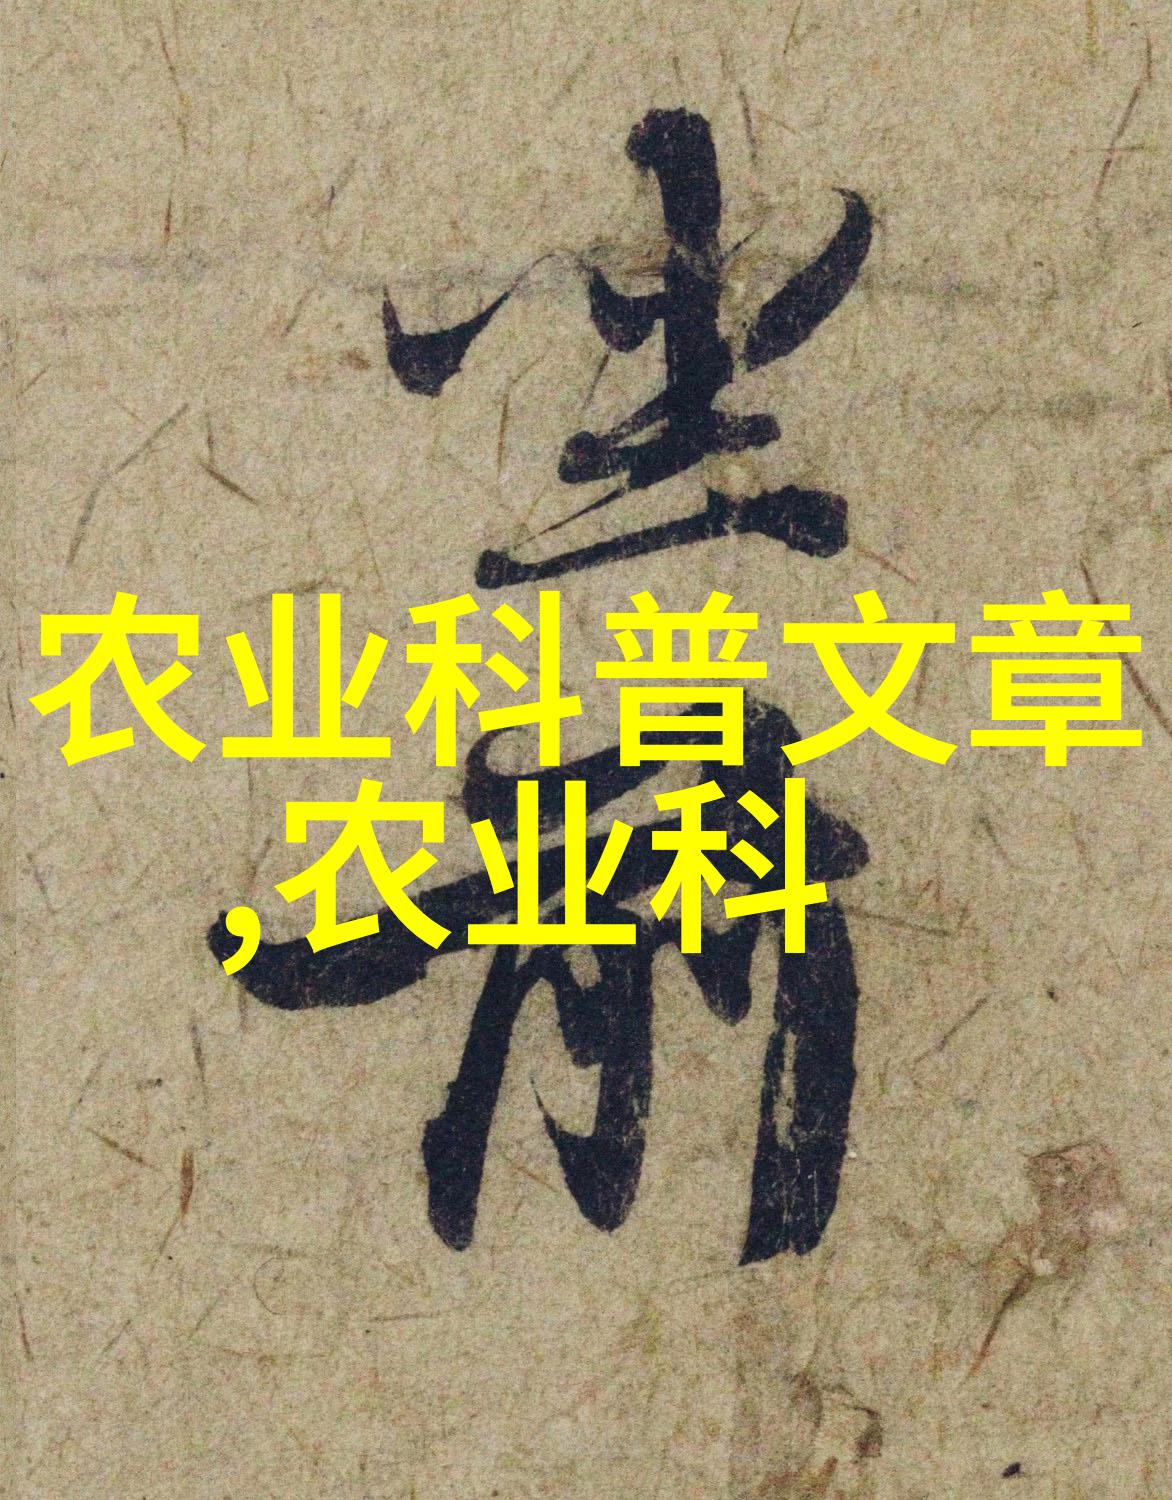 农业科普文章
,农业科